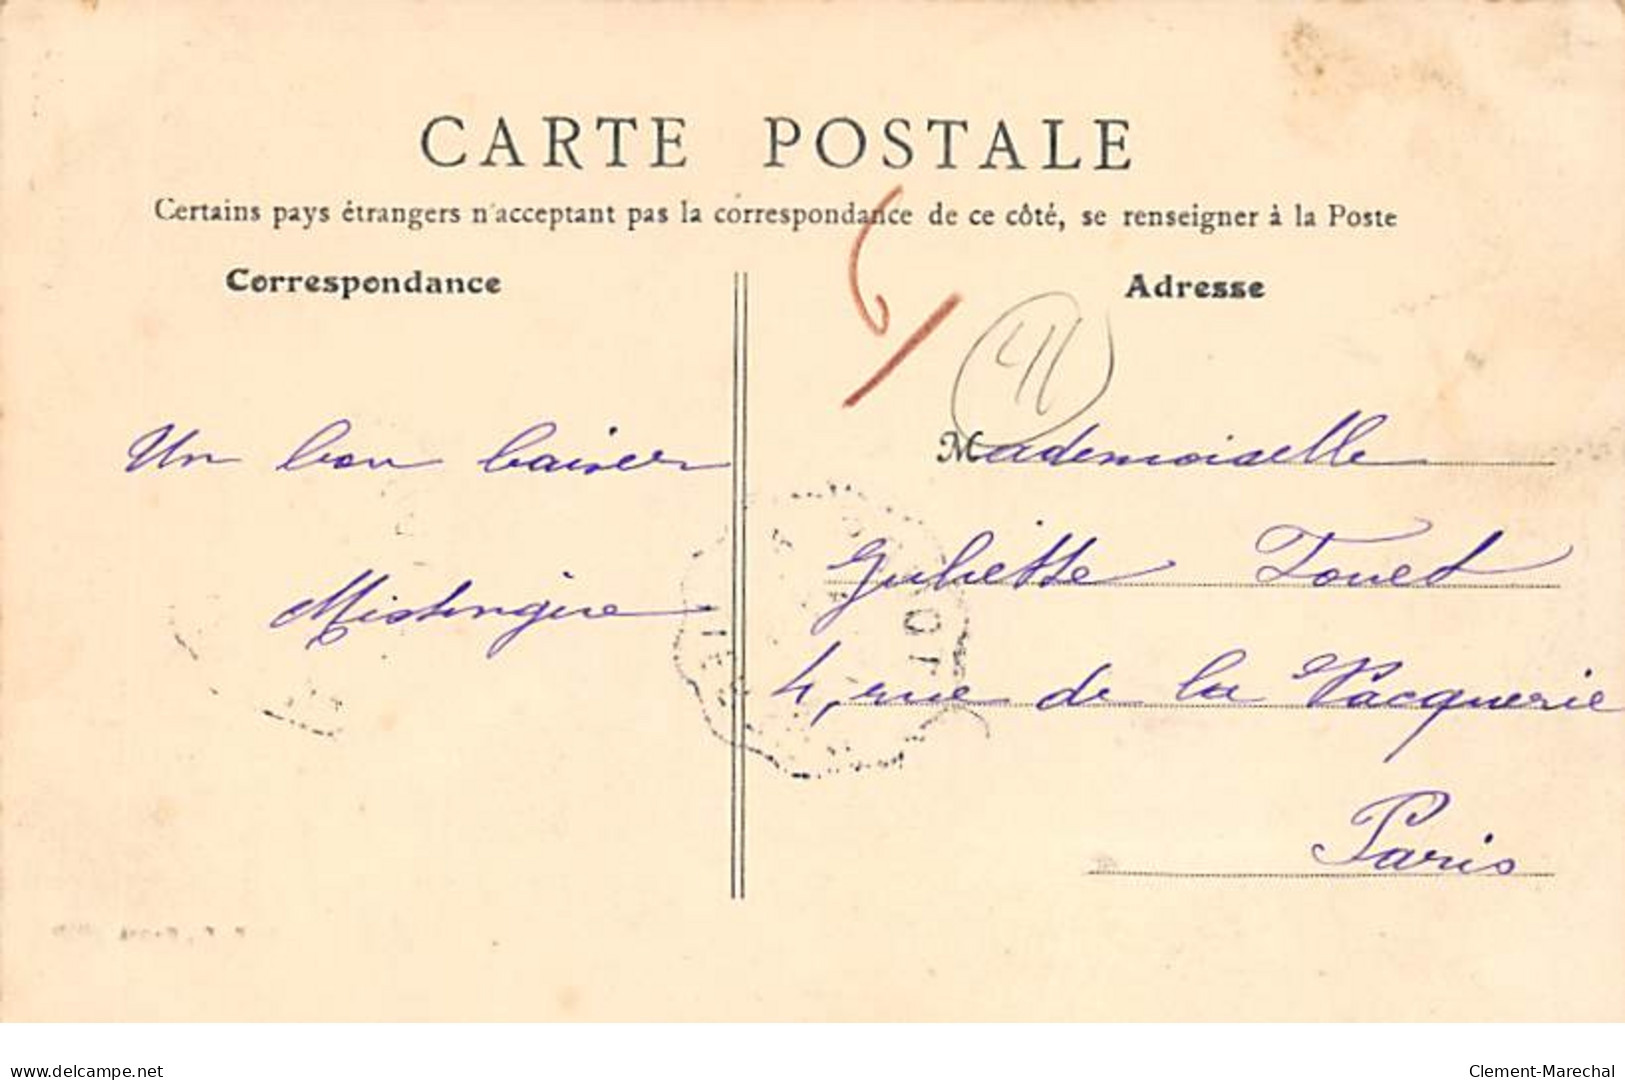 CARTE POSTALE
Certains pays étrangers n'acceptant pas la correspondance de ce côté, se renseigner à la Poste
Correspondance
Adresse
6
41
Un bon baiser
Mademoiselle
Juliette Touet
4, rue de la Vacquerie
Paris
www.delcampe.net
Clement-Marechal